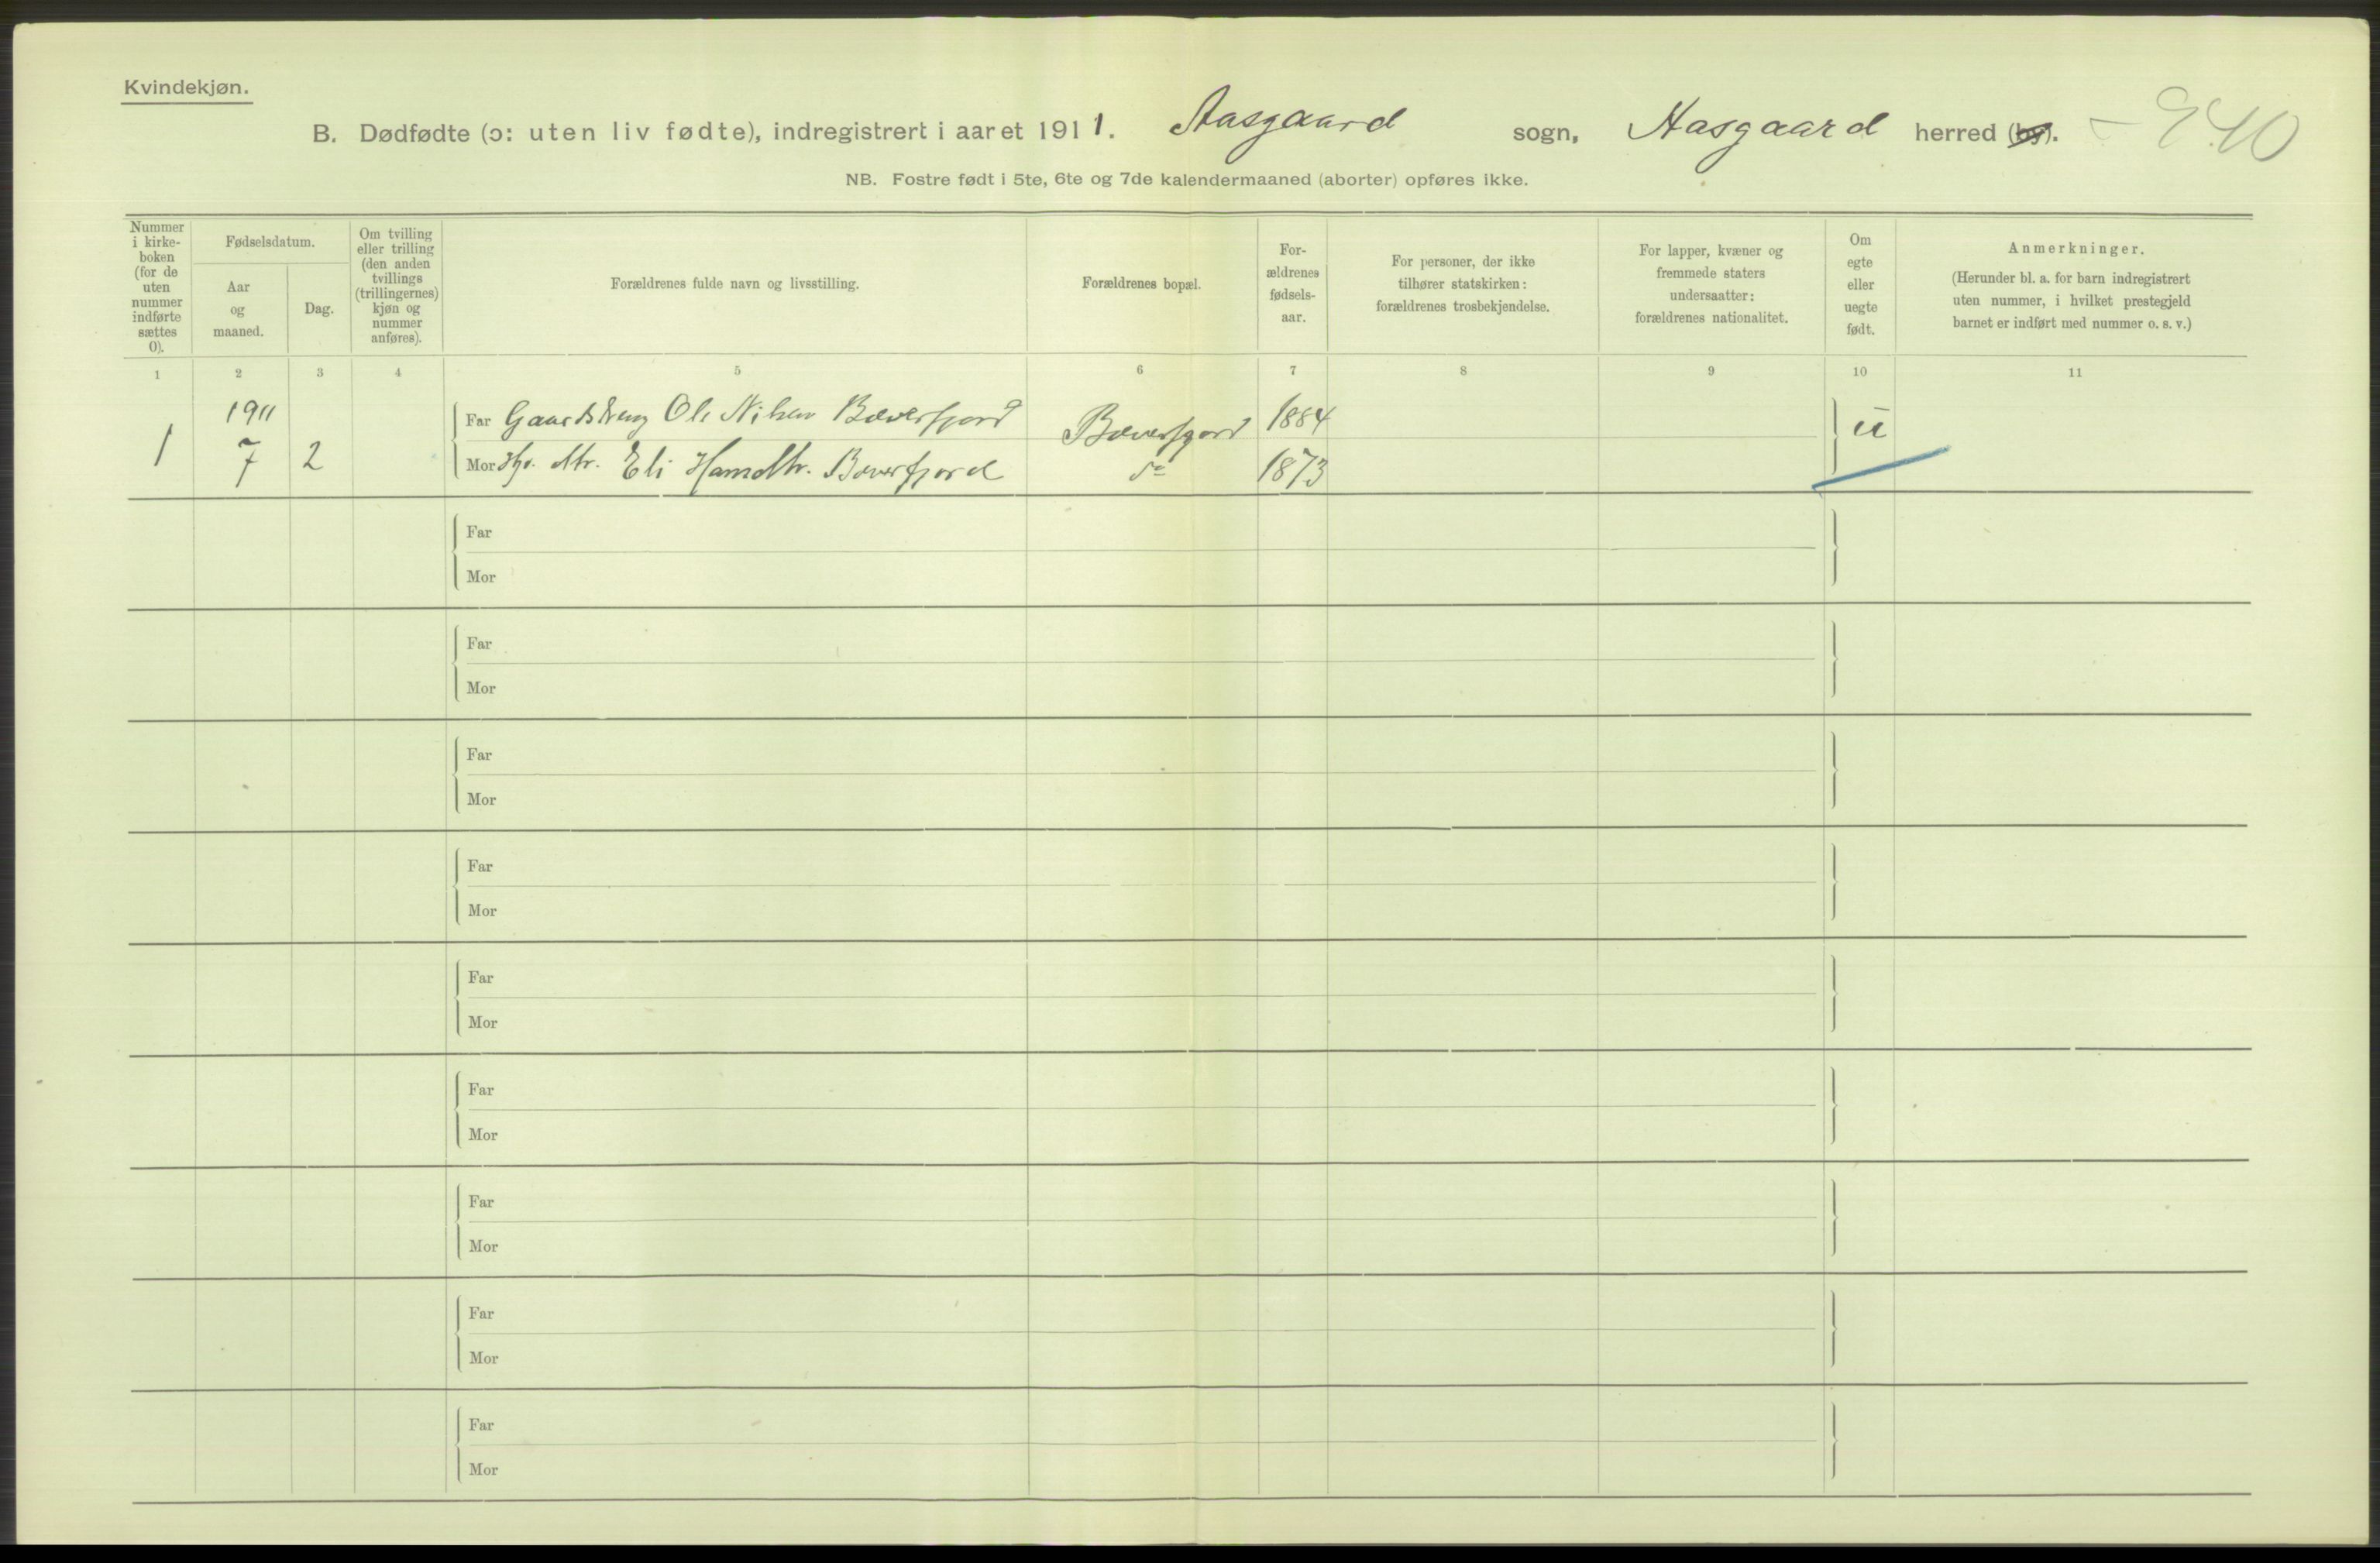 Kvindekjøn.
B. Dødfødte (ɔ: uten liv fødte), indregistrert i aaret 1911. Aasgaard sogn, Aasgaard herred (by).
940
NB. Fostre født i 5te, 6te og 7de kalendermaaned (aborter) opføres ikke.
Nummer
i kirke-
boken
(for de
uten
nummer
indførte
sættes
0).
Fødselsdatum.
Aar
og
maaned.
Dag.
Om tvilling
eller trilling
(den anden
tvillings
(trillingernes)
kjøn og
nummer
anføres).
Forældrenes fulde navn og livsstilling.
Forældrenes bopæl.
For-
ældrenes
fødsels-
aar.
For personer, der ikke
tilhører statskirken:
forældrenes trosbekjendelse.
For lapper, kvæner og
fremmede staters
undersaatter:
forældrenes nationalitet.
Om
egte
eller
uegte
født.
Anmerkninger.
(Herunder bl. a. for barn indregistrert
uten nummer, i hvilket prestegjeld
barnet er indført med nummer o. s. v.)
1 2 3 4 5 6 7 8 9 10 11
1911
Far Ole Nilsen Bæverfjord Bæverfjord 1884 u
1 7 2
Mor Eli Bæverfjord do 1873
Far
Mor
Far
Mor
Far
Mor
Far
Mor
Far
Mor
Far
Mor
Far
Mor
Far
Mor
Far
Mor